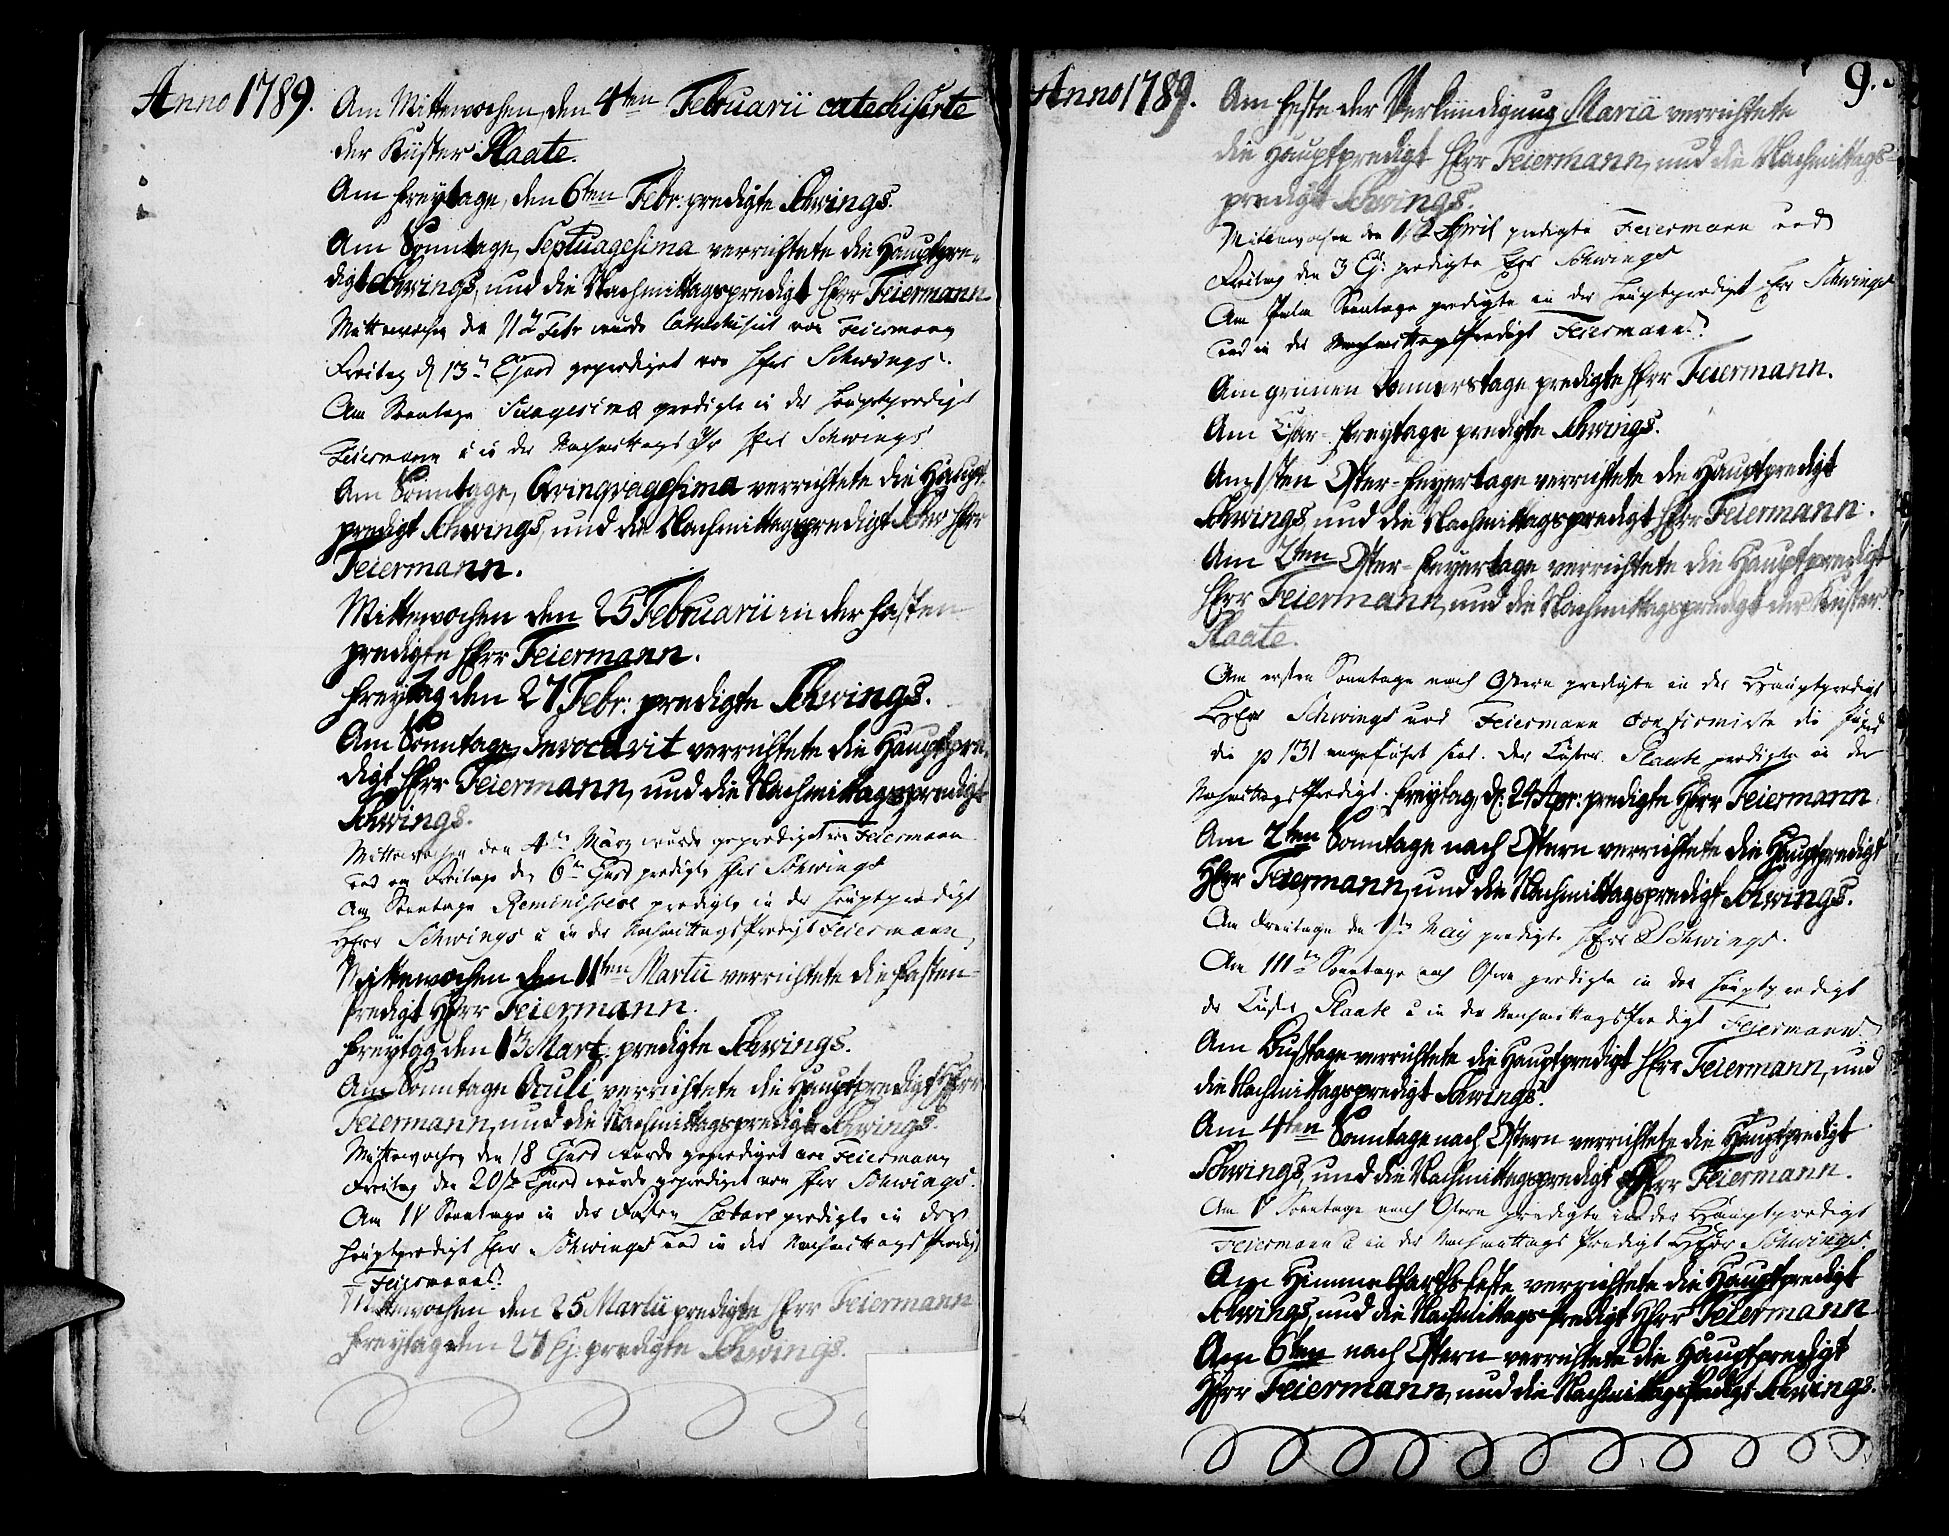 Anno 1789.
Am Mittewochen, den 4ten Februarii catechisirte
der Küster Plaate.
Am Freytage, den 6ten Febr: predigte Schwings.
Am Sonntage, Septuagesima verrichtete die Hauptpre-
digt Schwings, und die Nachmittagspredigt Herr Feiermann
Mittewochen den 11ten Febr wurde Catechisirt von Feiermann
Freitag d 13ten Ejusd geprediget von Herr Schwings.
Am Sontage Sexagesimæ predigte in der Hauptpredigt
Feiermann u in der Nachmittags Pr Herr Schwings
Am Sonntage, Qvinqvagesima verrichtete die Haupt-
predigt Schwings, und die Nachmittagspredigt Herr
Feiermann.
Mittewochen den 25 Februarii in der Fasten
predigte Herr Feiermann.
Freytag den 27 Febr: predigte Schwings.
Am Sonntage, Invocavit verrichtete die Hauptpre-
digt Herr Feiermann, und die Nachmittagspredigt
Schwings.
Mittewochen den 4ten März wurde geprediget von Feiermann
und am Freitage den 6ten Ejusd predigte Herr Schwings
Am Sontage Reminiscere predigte in der Hauptpredigt
Herr Schwings u in der Nachmittags Predigt Feiermann
Mittewochen den 11ten Martii verrichtete die Fasten-
Predigt Herr Feiermann.
Freytag den 13 Mart: predigte Schwings.
Am Sonntage Oculi verrichtete die Hauptpredigt Herr
Feiermann, und die Nachmittagspredigt Schwings.
Mittewochen den 18 Ejusd wurde geprediget von Feiermann
Freitag den 20ste Ejusd wurde geprediget von Herr Schwings.
Am IV Sontage in der Fasten Lætare predigte in der
Hauptpredigt Herr Schwings und in der Nachmittags Predigt
Feiermann.
Mittewochen den 25 Martii predigte Herr Feiermann
Freytag den 27 Ej: predigte Schwings.
Anno 1789.
9.
Am Feste der Verkündigung Mariä verrichtete
die Hauptpredigt Herr Feiermann, und die Nachmittags-
predigt Schwings.
Mittewochen den April predigte Feiermann und
Freitag den 3 Ej: predigte Herr Schwings
Am Palm Sontage predigte in der Hauptpredigt Herr Schwings
und in der Nachmittags Predigt Feiermann.
Am grünen Donnerstage predigte Herr Feiermann.
Am Char-Freytage predigte Schwings.
Am 1sten Oster-Feyertage verrichtete die Hauptpredigt
Schwings, und die Nachmittagspredigt Herr Feiermann.
Am 2ten Oster-Feyertage verrichtete die Hauptpredigt
Herr Feiermann, und die Nachmittagspredigt der Küster
Plaate.
Am ersten Sonntage nach Ostern predigte in der Hauptpredigt
Herr Schwings und Feiermann Confirmirte die
die p 131 angeführt sind. Der Cüster Plaate predigte in der
Nachmittags Predigt. Freytag, d: 24 Apr: predigte Herr Feiermann.
Am 2ten Sonntage nach Ostern verrichtete die Hauptpredigt
Herr Feiermann, und die Nachmittagspredigt Schwings.
Am Freitage den 1sten May predigte Herr Schwings.
Am IIIten Sontage nach Ostern predigte in der Hauptpredigt
der Cüster Plaate u in der Nachmittags Predigt Feiermann
Am Bußtage verrichtete die Hauptpredigt Herr Feiermann, und
die Nachmittagspredigt Schwings.
Am 4ten Sonntage nach Ostern verrichtete die Hauptpredigt
Schwings, und die Nachmittagspredigt Herr Feiermann.
Am V Sontage nach Ostern predigte in der Hauptpredigt
Feiermann u in der Nachmittags Predigt Herr Schwings.
Am Himmelfarthsfeste verrichtete die Hauptpredigt
Schwings, und die Nachmittags Predigt Herr Feiermann
Am 6ten nach Ostern verrichtete die Hauptpredigt
Herr Feiermann, und die Nachmittagspredigt Schwings.